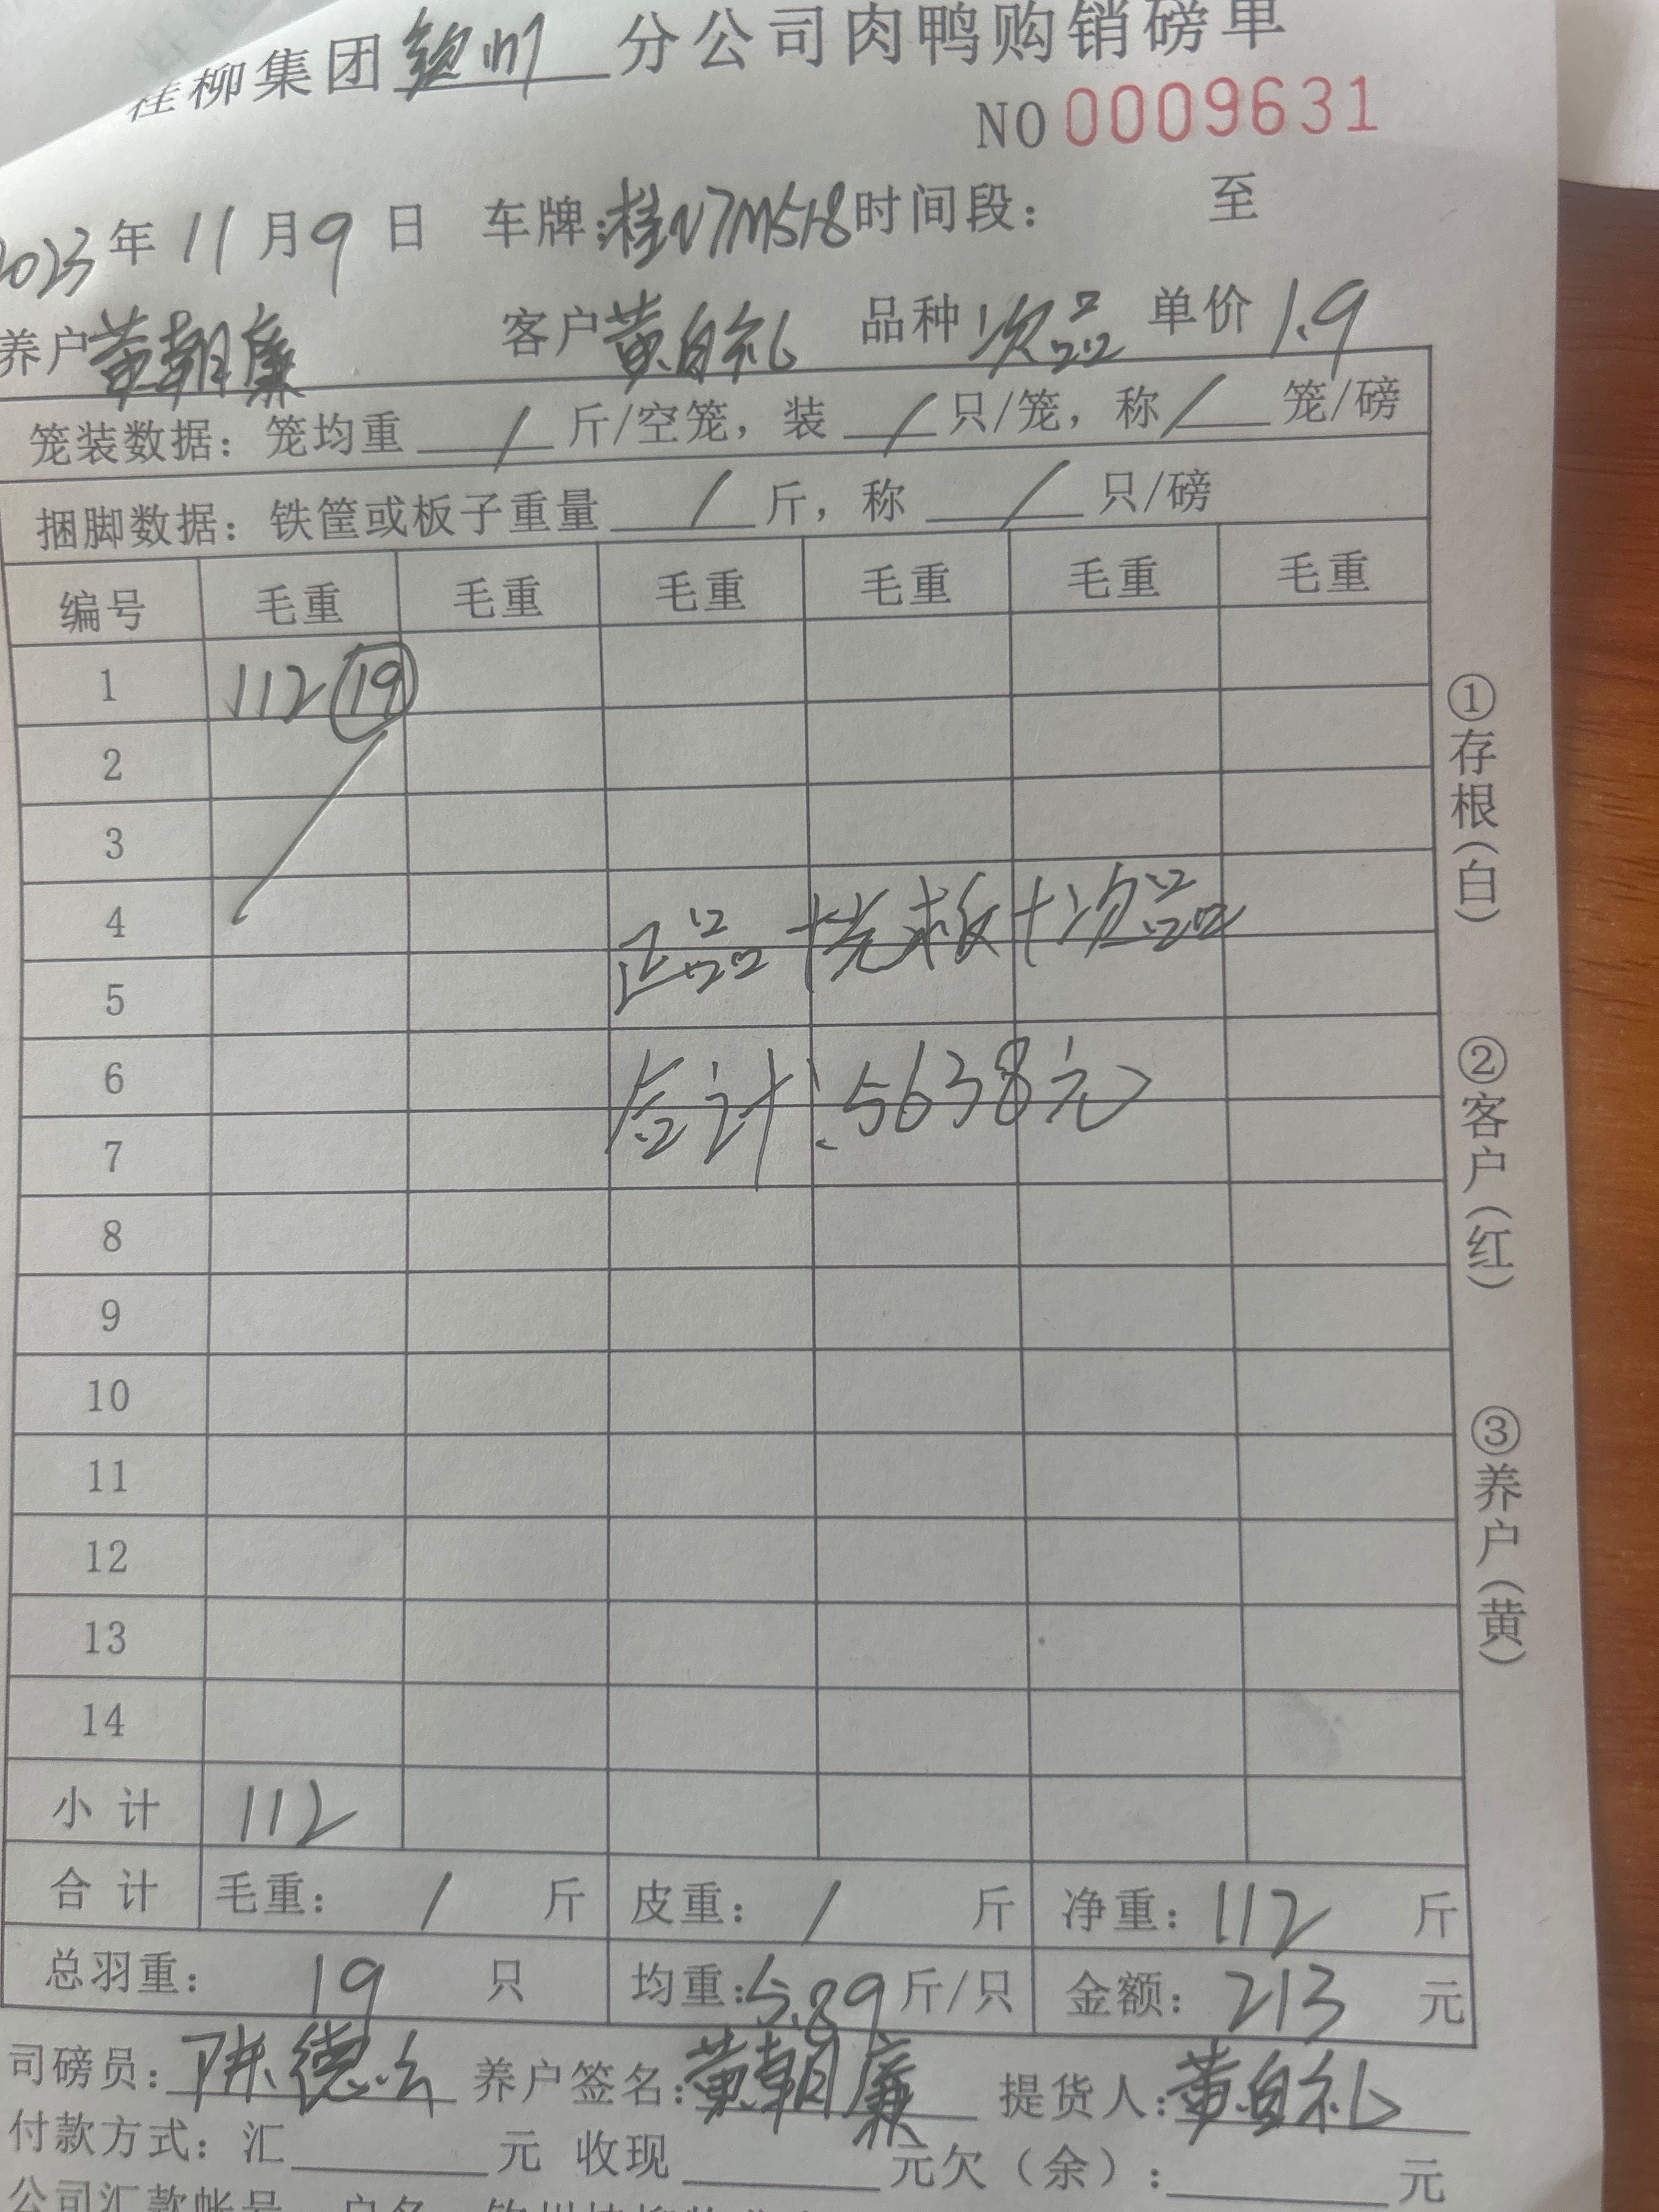 桂柳集团钦州分公司肉鸭购销磅单
NO 0009631
2023年11月9日 车牌:桂N7M518时间段: 至
养户黄朝廉 客户黄自礼 品种次品 单价1.9
笼装数据: 笼均重 / 斤/空笼, 装 / 只/笼, 称 / 笼/磅
捆脚数据: 铁筐或板子重量 / 斤, 称 / 只/磅
编号 毛重 毛重 毛重 毛重 毛重 毛重
1 112 19
2
3
4
正品+光板+次品
5
6
合计:5638元
7
8
9
10
11
12
13
14
小计 112
合计 毛重: / 斤 皮重: / 斤 净重: 112 斤
总羽重: 19 只 均重:5.89斤/只 金额: 213 元
司磅员:陈德 养户签名:黄朝廉 提货人:黄自礼
付款方式: 汇 元 收现 元欠(余): 元
公司汇款帐号 户名
①存根(白)
②客户(红)
③养户(黄)